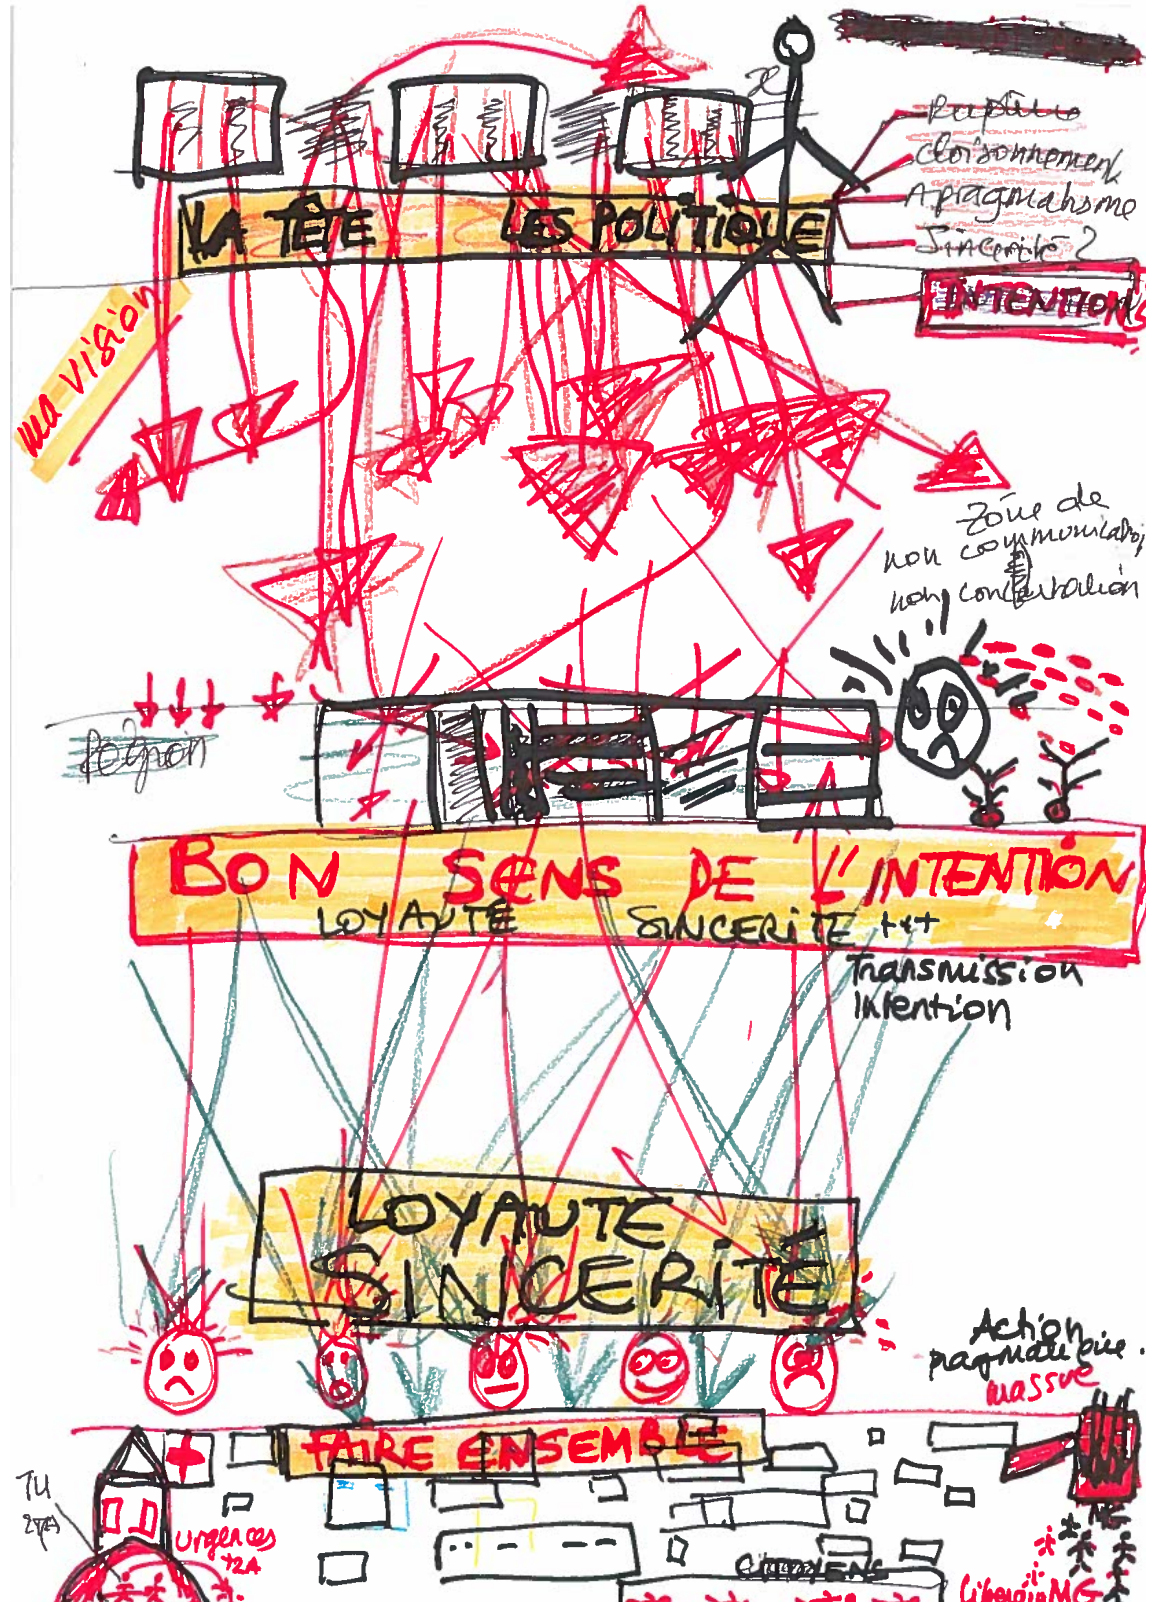 Rupture
cloisonnement
Apragmatisme
Sincérité ?
LA TÊTE LES POLITIQUE
INTENTIONS
ma vision
Zône de
non communication
non concertation
BON SENS DE L'INTENTION
LOYAUTÉ SINCERITE +++
Transmission
Intention
LOYAUTÉ
SINCERITÉ
Action
pragmatique.
massue
FAIRE ENSEMBLE
TU
urgences
+2A
MG
CITOYENS
MG